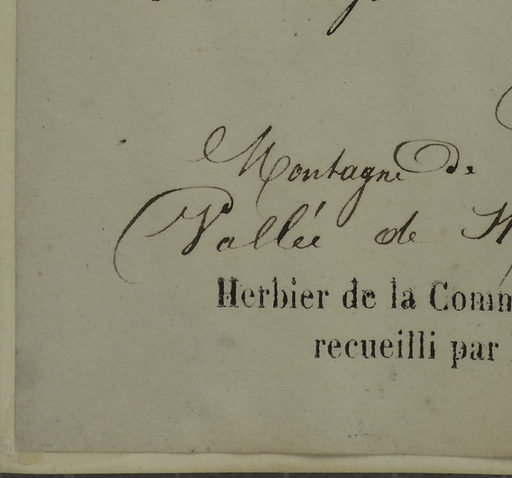 Montagne de
Vallée de
Herbier de la Comm
recueilli par